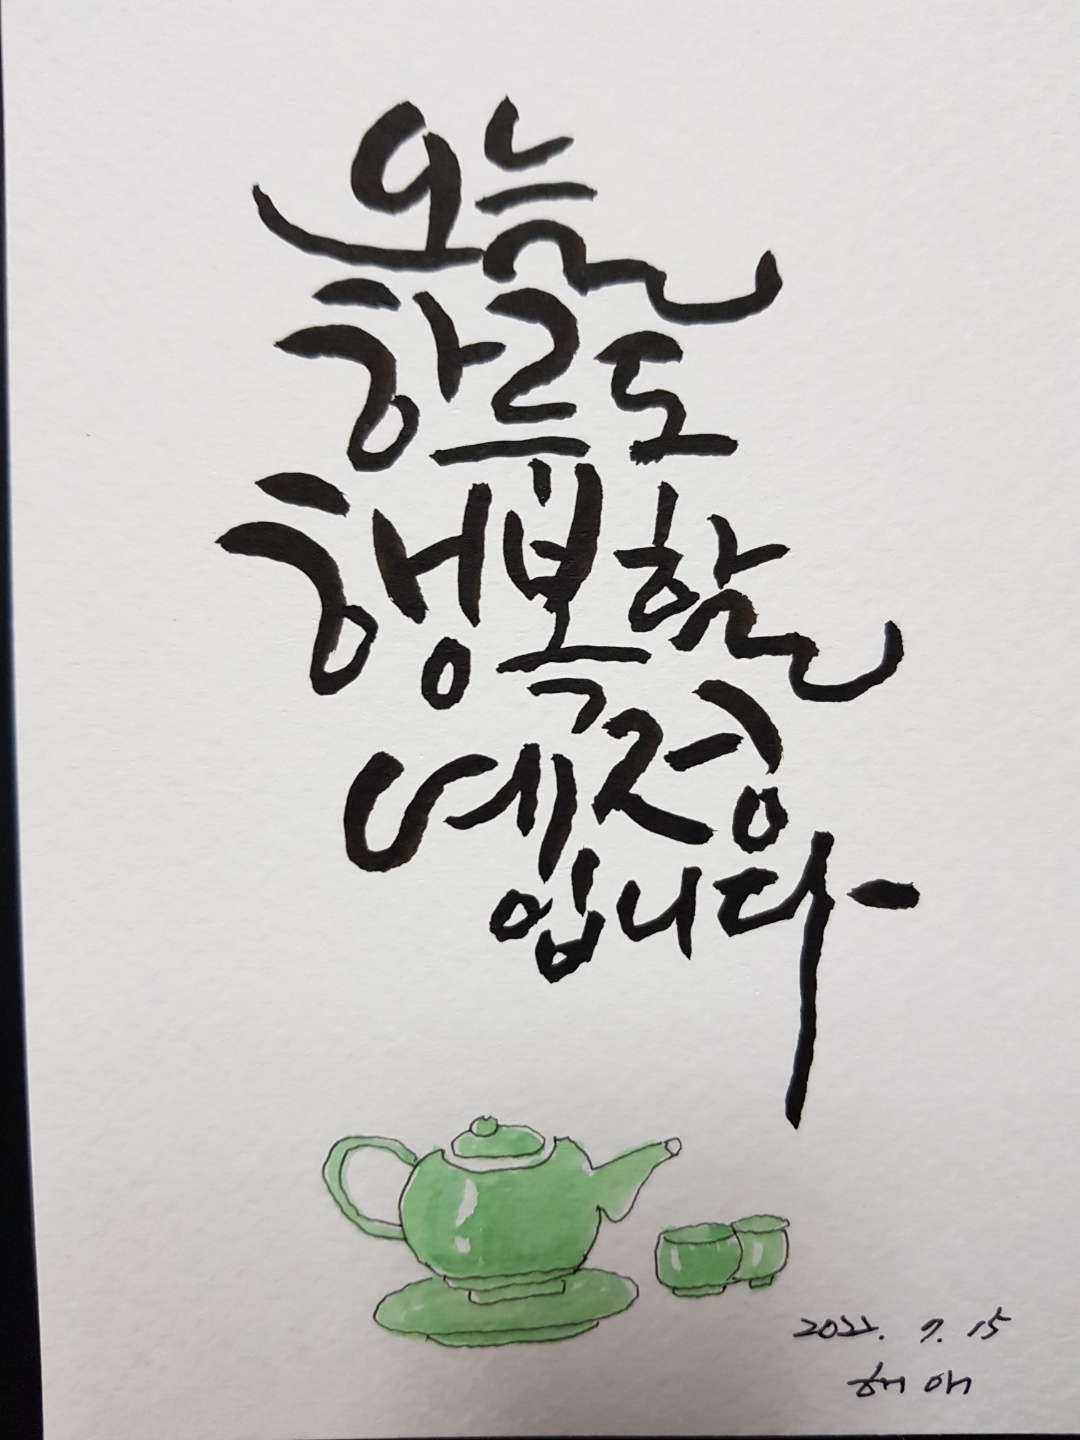 오늘
하루도
행복할
예정
입니다
2022. 7. 15
혜애